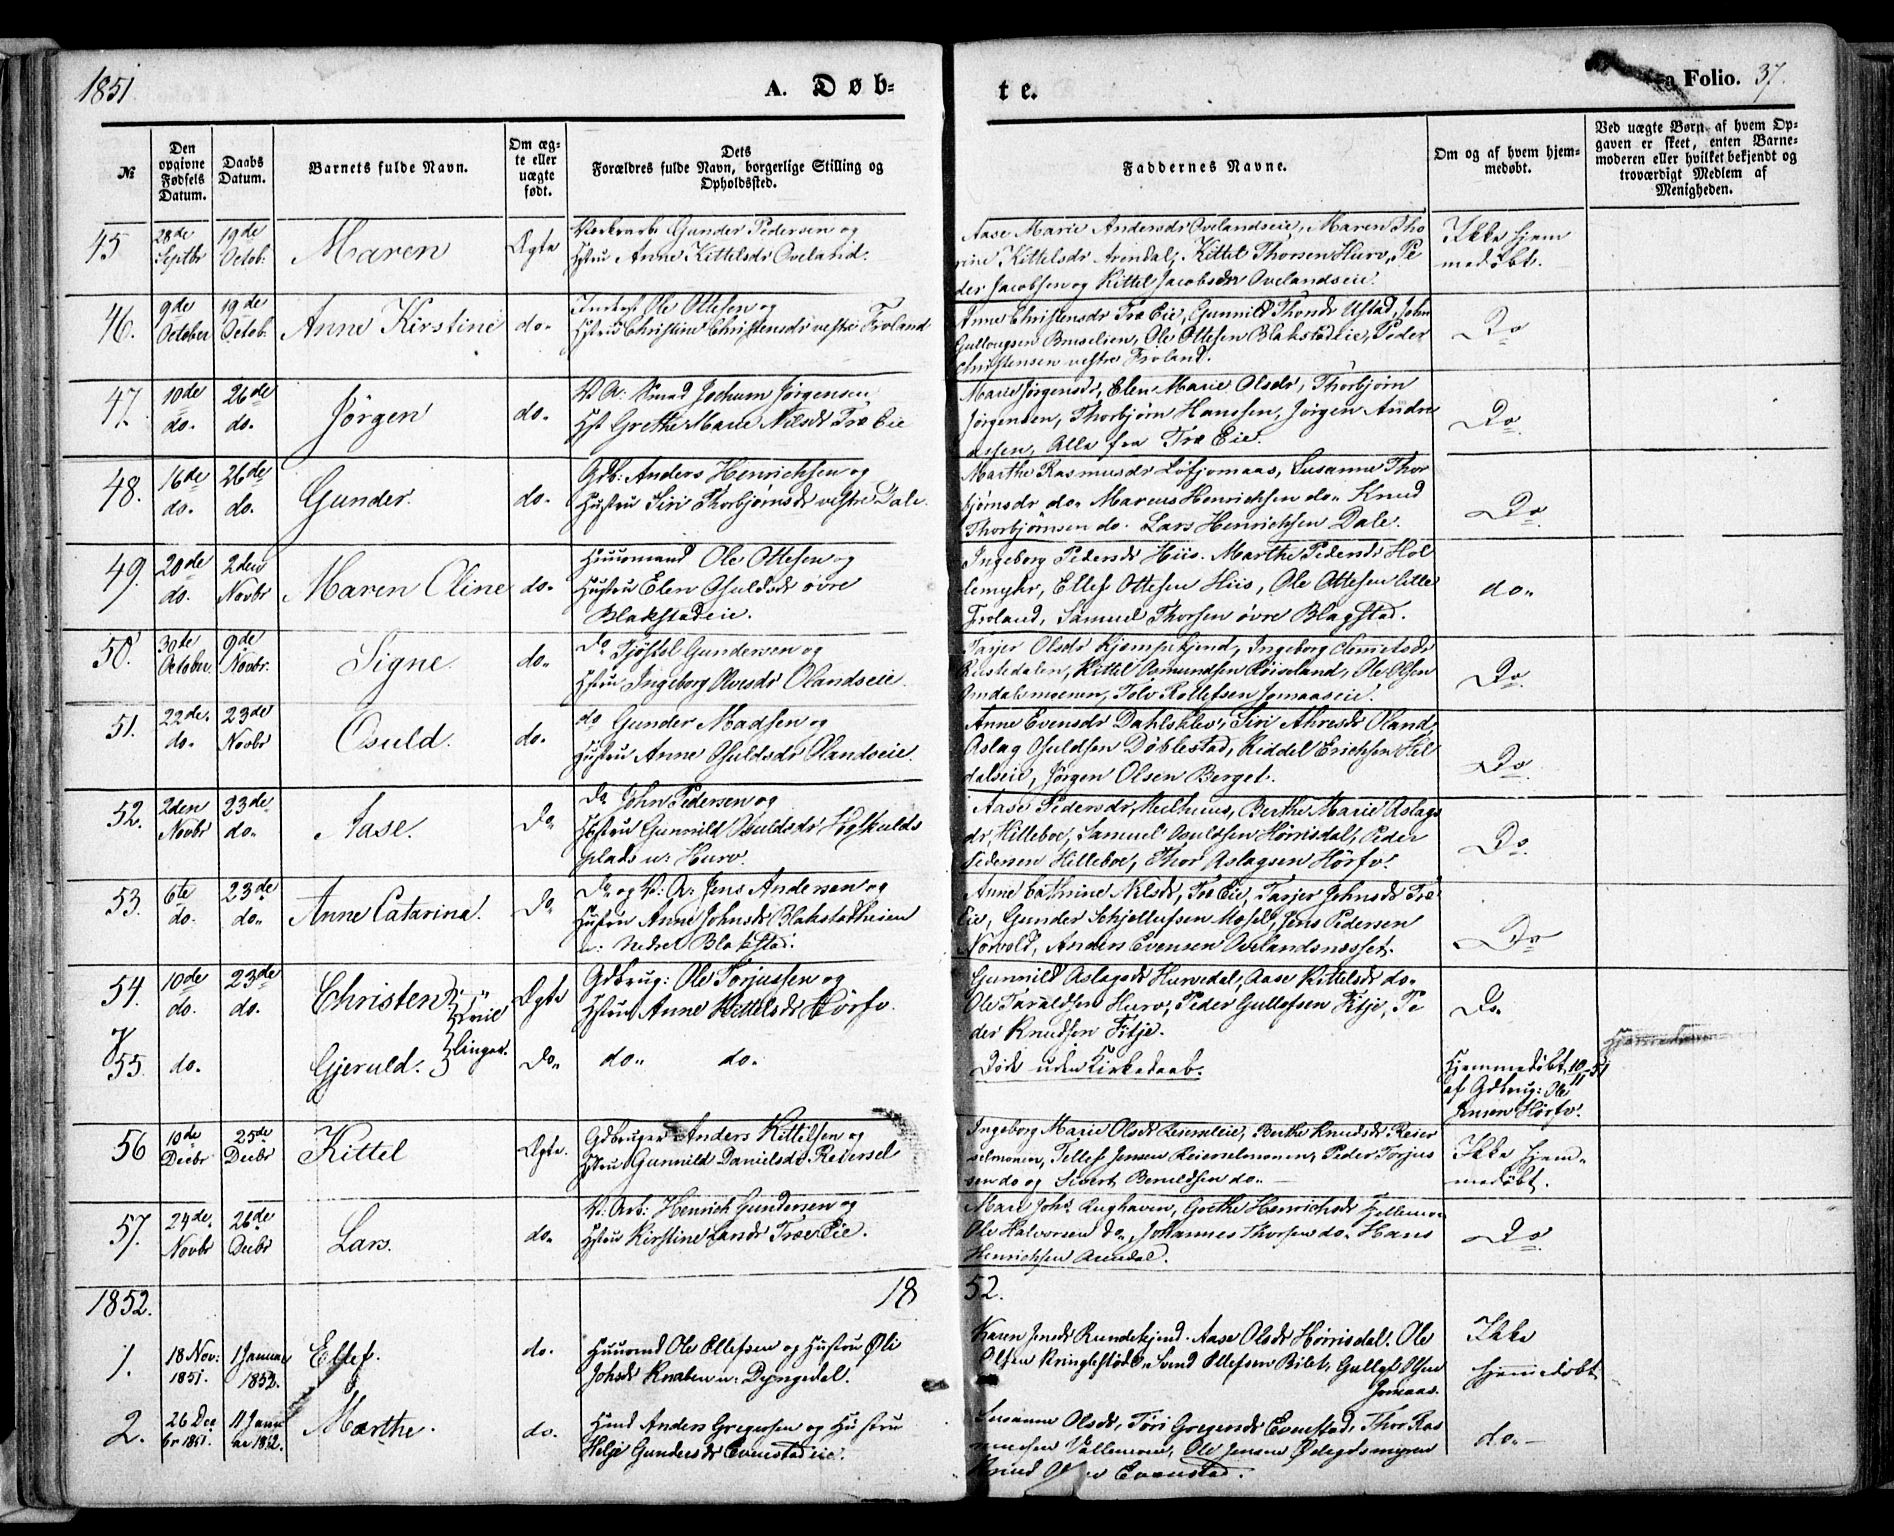 1851
A. Døb-
te.
Folio. 37.
№
Den opgivne Fødsels Datum.
Daabs Datum.
Barnets fulde Navn.
Om ægte eller uægte født.
Dets Forældres fulde Navn, borgerlige Stilling og Opholdssted.
Faddernes Navne.
Om og af hvem hjemmedøbt.
Ved uægte Børn af hvem Opgaven er skeet, enten Barnemoderen eller hvilket bekjendt og troværdigt Medlem af Menigheden.
45
28de Septbr
19de Octob:
Maren
Ægte
Gunder Pedersen og
Hstru Anne Kittelsdr Oveland.
Aase Marie Andersdr Ovelandseie, Maren Tho
rine Kittelsdr Arendal, Kittel Thorsen Hurv, Pe
der Jacobsen og Kittel Jacobsdr Ovelandseie.
Ikke hjem
medøbt.
46.
9de October
19de Octob.
Anne Kirstine
do.
Ole Olsen og
Hstru Christine Christensdr vestre Froland
Anne Christensdr Træ Eie, Gunnild Thorsdr Ufstad, John
Gullougsen Buselien, Ole Ottesen Blakstadeie, Peder
Christensen vestre Froland.
Do
47.
10de do.
26de do.
Jörgen
do.
Knud Jochum Jörgensen,
Hst Grethe Marie Nilsdr Træ Eie
Marie Jörgensdr, Elen Marie Olsdr, Thorbjörn
Jörgensen, Thorbjörn Hansen, Jörgen Andre
asen, Alle fra Træ Eie.
Do
48.
16de do.
26de do.
Gunder.
do.
Gdb: Anders Henrichsen og
Hustru Siri Thorbjörnsdr vestre Dale.
Marthe Rasmusdr Löfjomaas, Susanne Thor
björnsdr do. Marcus Henrichsen do. Knud
Thorbjörnsen do. Lars Henrichsen Dale.
Do
49.
20de do.
2den Novbr
Maren Oline
do.
Huusmand Ole Ottesen og
Hustru Elen Osuldsdr övre
Blakstadeie.
Ingeborg Pedersdr Hiis. Marthe Pedersdr Hol
lemyhr, Ellef Ottesen Hiis, Ole Ottesen lille
Froland, Samuel Thorsen övre Blagstad.
do.
50.
30te October.
9de Novbr.
Signe
do.
Do Tjöstel Gundersen og
Hstru Ingeborg Olvesdr Olandseie.
Tarjer Olsdr Kjempekjend, Ingeborg
Kittel Osmundsen Röiseland, Ole Olsen
Tolv Rollefsen Jomaaseie.
Do
51.
22de do.
23de Novbr
Osuld.
do.
do Gunder Madsen og
Hustru Anne Osuldsdr Olandseie.
Anne Evensdr Dahlsklev, Siri Ahresdr Oland,
Aslag Osuldsen Döblestad, Riddel Erichsen Hil
dalseie, Jörgen Olsen Berget.
Do
52.
2den Novbr
23de do.
Aase.
Do
Do John Pedersen og
Hstru Gunnild Osuldsdr
plads u: Hurv.
Aase Pedersdr Berthe Marie Aslags
dr, Hilleboe, Samuel Osuldsen Hörrisdal, Peder
Pedersen Hilleboe, Thor Aslagsen Hörfv.
Do
53.
6te do.
23de do.
Anne Catarina.
Do
Do og V: A: Jens Andersen og
Hustru Anne Johnsdr Blakstadheien
u: Nedre Blakstad.
Anne Cathrine Nilsdr, Træ Eie, Tarjer Johnsdr Træ
Eie, Gunder Schjellufsen Mosel, Jens Pedersen
Norvold, Anders Evensen Ovelandsnæsset.
Do
54.
10de do.
23de do.
Christen
Tvil
Ægte
Gdbrug: Ole Torjussen og
Hstru Anne Kittelsdr Hörfv.
Gunnild Aslagsdr Hurvedal, Aase Kittelsdr do.
Ole Taraldsen Hurv, Peder Gullefsen Fitje, Pe
der Knudsen Fitje.
Do.
55.
do.
Gjeruld.
linger.
Do.
do. do.
Död uden Kirkedaab.
Hjemmedöbt, 10/11 51
af Gdbrug: Ole
Jensen Hörfv.
56
10de Decbr
25de Decbr
Kittel
Ægte.
Gdbruger Anders Kittilsen og
Hstru Gunnild Danielsdr Reiersel
Ingeborg Marie Olsdr Berthe Knudsdr Reier
selmonen, Tellef Jensen Reierselmonen, Peder Torjus
sen do og Sivert Berulfsen do.
Ikke hjem-
medöbt.
57.
24de Novbr
26de Decbr
Lars.
do.
V: Arb: Henrich Gundersen og
Hstru Kirstine Larsdr Træe Eie.
Mari Johs. Grethe Henrichsdr
Ole Halvorsen do., Johannes Thorsen do. Hans
Henrichsen Arendal.
Do
1852.
1852.
1.
18 Nov: 1851.
1 Januar 1852.
Ellef.
do.
Huusmd Ole Ellefsen og Hustru Öli
Johsdr Knaben u: Dyngedal.
Karen Jensdr Rundekjend. Aase Olsdr Hörrisdal. Ole
Olsen Kringlestöel. Svend Ellefsen Bilet, Gullef Olsen
Jomaas.
Ikke
hjemmedöbt
2.
26 Dec br 1851.
11 Janu ar 1852.
Marthe.
do.
Husmd Anders Gregersen og Hustru
Helje Gundersdr Evenstadeie.
Susanne Olsdr, Töri Gregersdr Evenstad, Thor Ras
mussen Vallemoen, Ole Jensen
Knud Evenstad.
do.